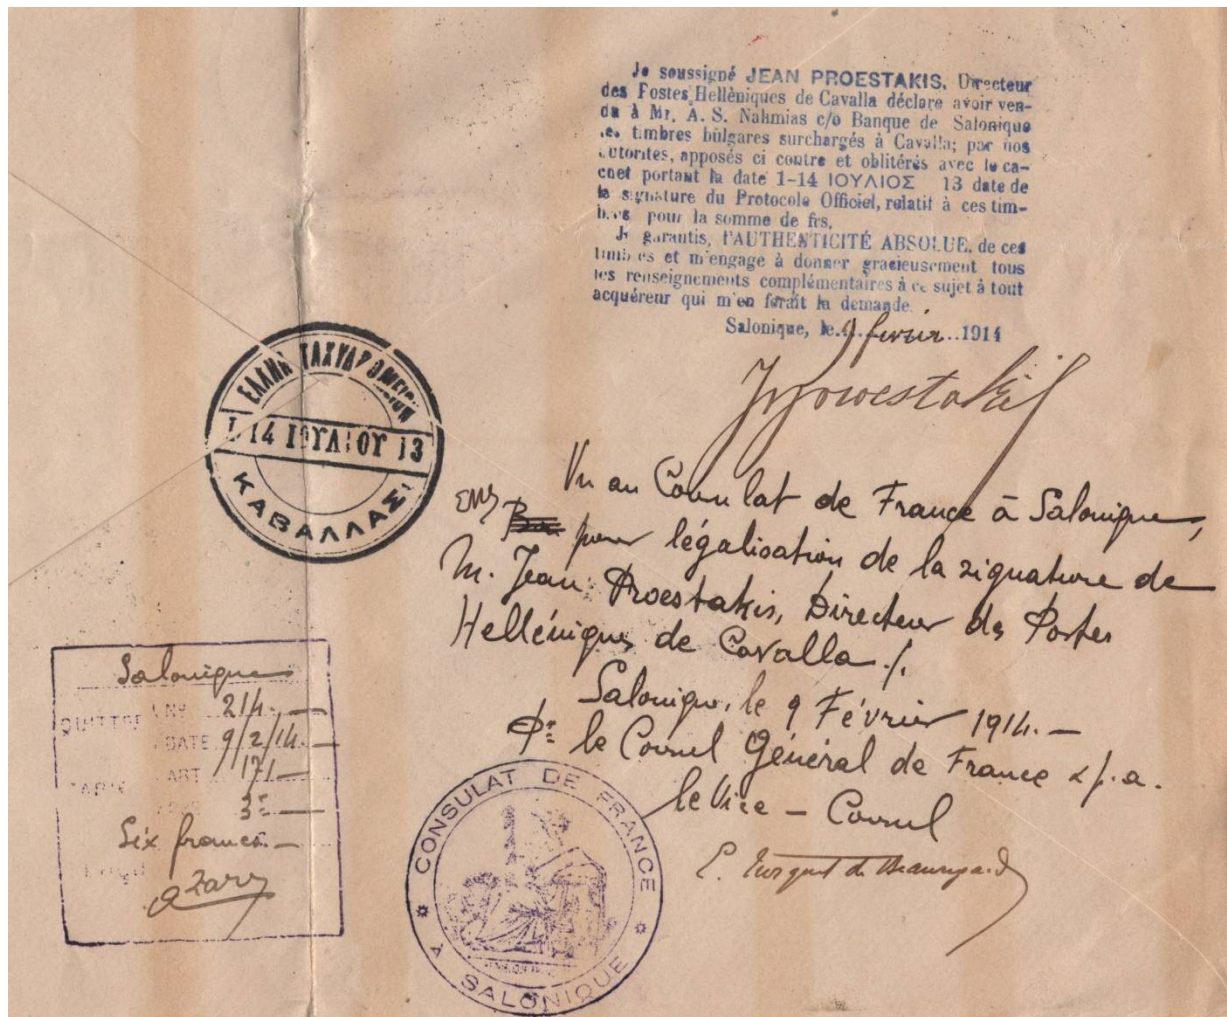 Je soussigné JEAN PROESTAKIS. Directeur
des Postes Hellèniques de Cavalla déclare avoir ven-
du à Mr. A. S. Nahmias c/o Banque de Salonique
les timbres bulgares surchargés à Cavalla; par nos
autorites, apposés ci contre et oblitérés avec le ca-
chet portant la date 1-14 ΙΟΥΛΙΟΣ 13 date de
la signature du Protocole Officiel, relatif à ces tim-
bres pour la somme de frs.
Je garantis, l'AUTHENTICITÉ ABSOLUE. de ces
timbres et m'engage à donner gracieusement tous
les renseignements complémentaires à ce sujet à tout
acquéreur qui m'en ferait la demande.
Salonique, le 9 fevrier 1914
JProestakis
ΕΛΛΗΝ ΤΑΧΥΔΡΟΜΕΙΟΝ
1.14 ΙΟΥΛΙΟΥ 13
ΚΑΒΑΛΛΑΣ
Vu au Consulat de France à Salonique,
pour légalisation de la signature de
M. Jean Proestakis, Directeur des Postes
Helléniques de Cavalla ./.
Salonique, le 9 Février 1914.—
Pr. le Consul Général de France
le Vice – Consul
Salonique
QUITTCE N° 214.—
DATE 9/2/14.—
TARIF ART 171—
Six francs.—
CONSULAT DE FRANCE
À SALONIQUE